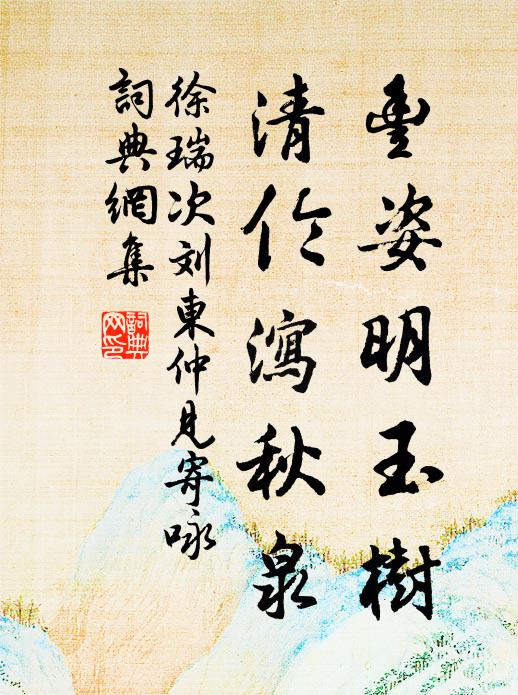 豐姿明玉樹
清伶瀉秋泉
徐瑞次刘東仲見寄咏
詞典網集
詞典
网印